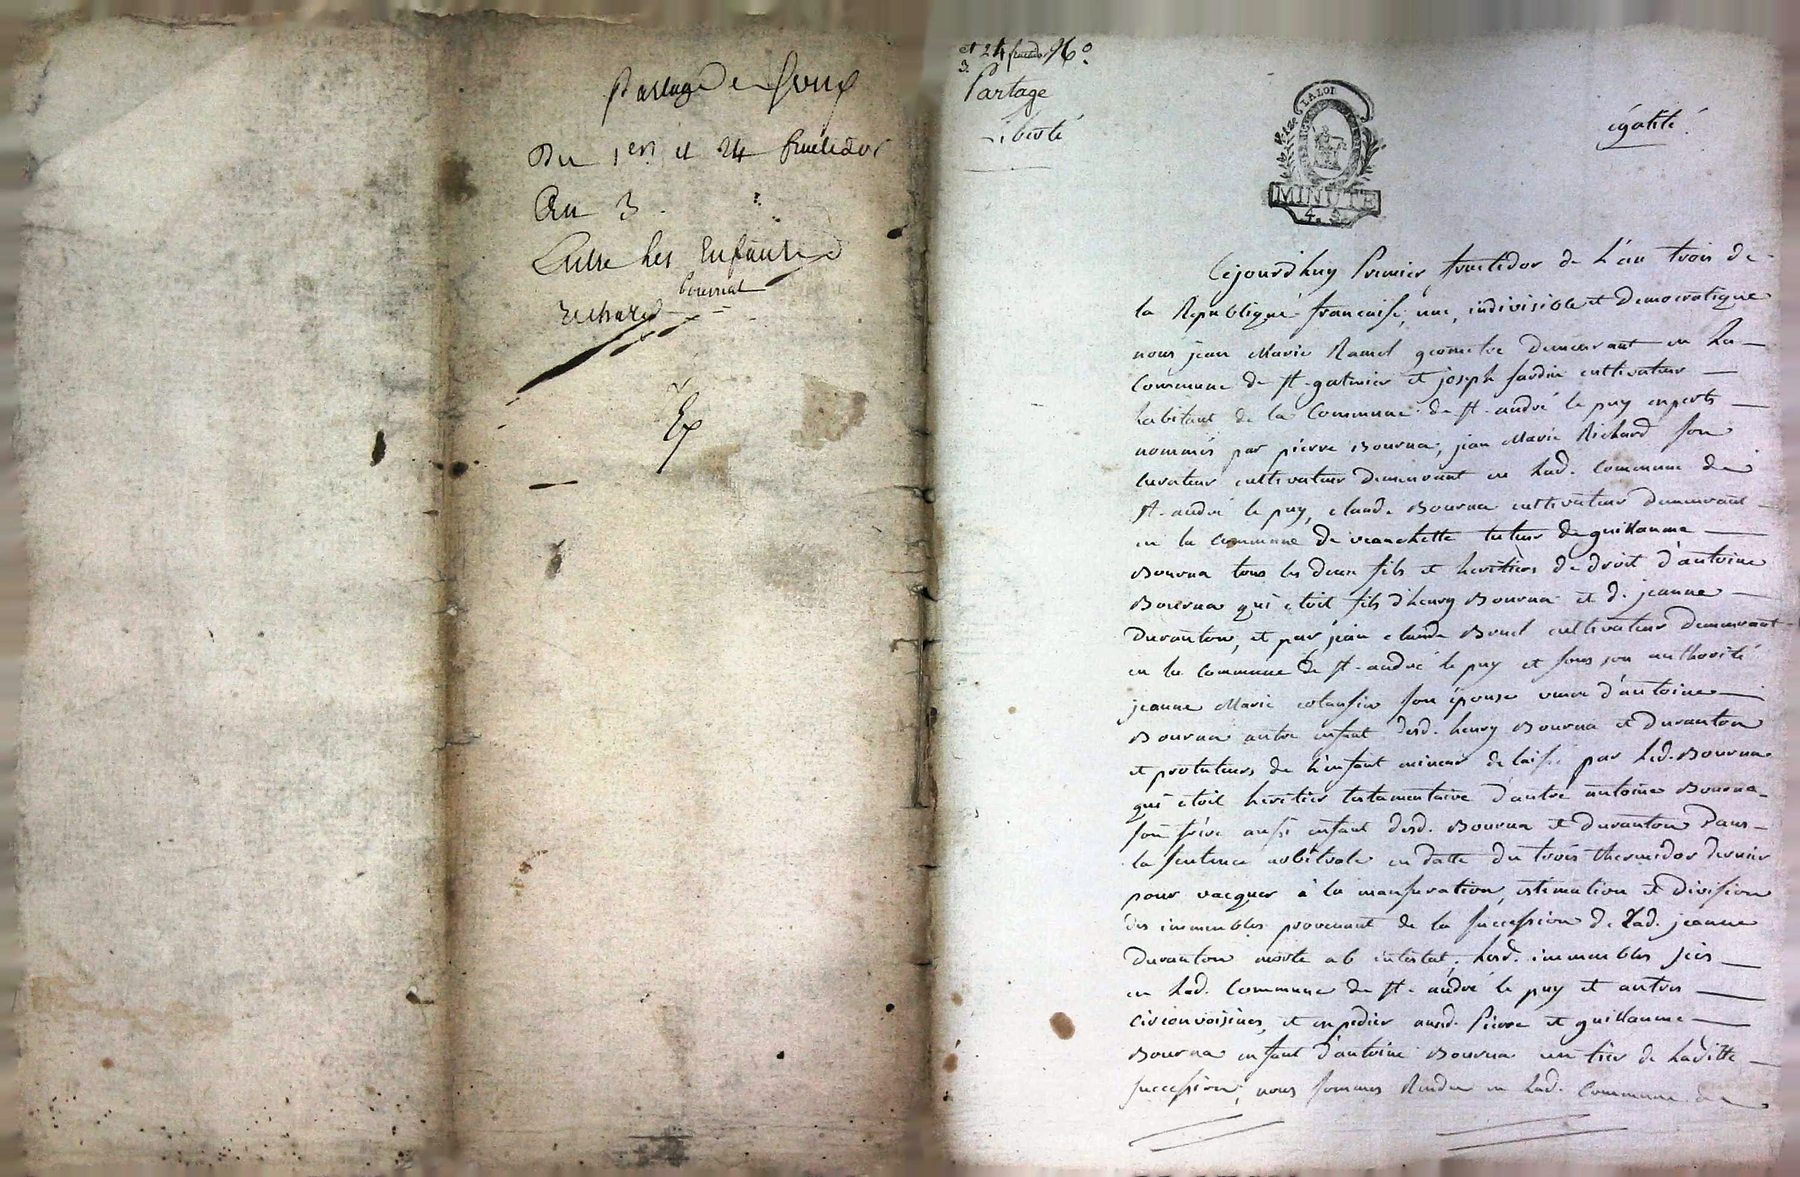 Partage
Du 1er et 24 fructidor
An 3.
Entre les Enfants
bournat
richard
Ex
et 24 fructidor
3.
Partage
Liberté
LA LOI
égalité.
MINUTE
4. S.
Cejourd'huy Premier fructidor de L'an trois de
la Republique francaise, une, indivisible et democratique
nous jean Marie Ramel geometre demeurant en La
Commune de St. galmier et joseph jardin cultivateur
habitant de la Commune de St. andré le puy experts
nommés par pierre Bourna, jean Marie Richard son
curateur cultivateur demeurant en Lad. Commune de
St. andré le puy, claude Bourna cultivateur demeurant
en la Commune de veauchette tuteur de guillaume
Bourna tous les deux fils et heritiers de droit d'antoine
Bourna qui etoit fils d'henry Bourna et d. jeanne
Duranton, et par jean claude Bruel cultivateur demeurant
en la Commune de St. andré le puy et sous son authorité
jeanne Marie son épouse veuve d'antoine
Bourna autre enfant desd. henry Bourna et Duranton
et protuteurs de L'enfant mineur delaissé par Led. Bourna
qui etoit heritier testamentaire d'autre antoine Bourna
son frère aussi enfant desd. Bourna et Duranton Dans
La sentence arbitrale en datte du trois thermidor dernier
pour vacquer à la mansuration, estimation et division
des immeubles provenant de la succession de Lad. jeanne
Duranton morte ab intestat, Lesd. immeubles sies
en Lad. Commune de St. andré le puy et autres
circonvoisines, et expedier ausd. Pierre et guillaume
Bourna enfant d'antoine Bourna un tier de Laditte
succession, nous sommes Rendu en Lad. Commune de